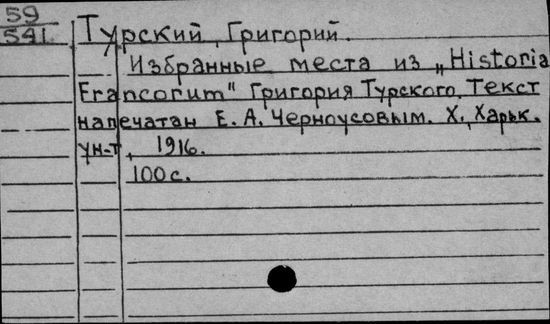 59
541
Турский, Григорий.
Избранные места из „Historia
Francorum" Григория Турского. Текст
напечатан Е. А. Черноусовым. Х., Харьк.
ун-т, 1916.
100 с.